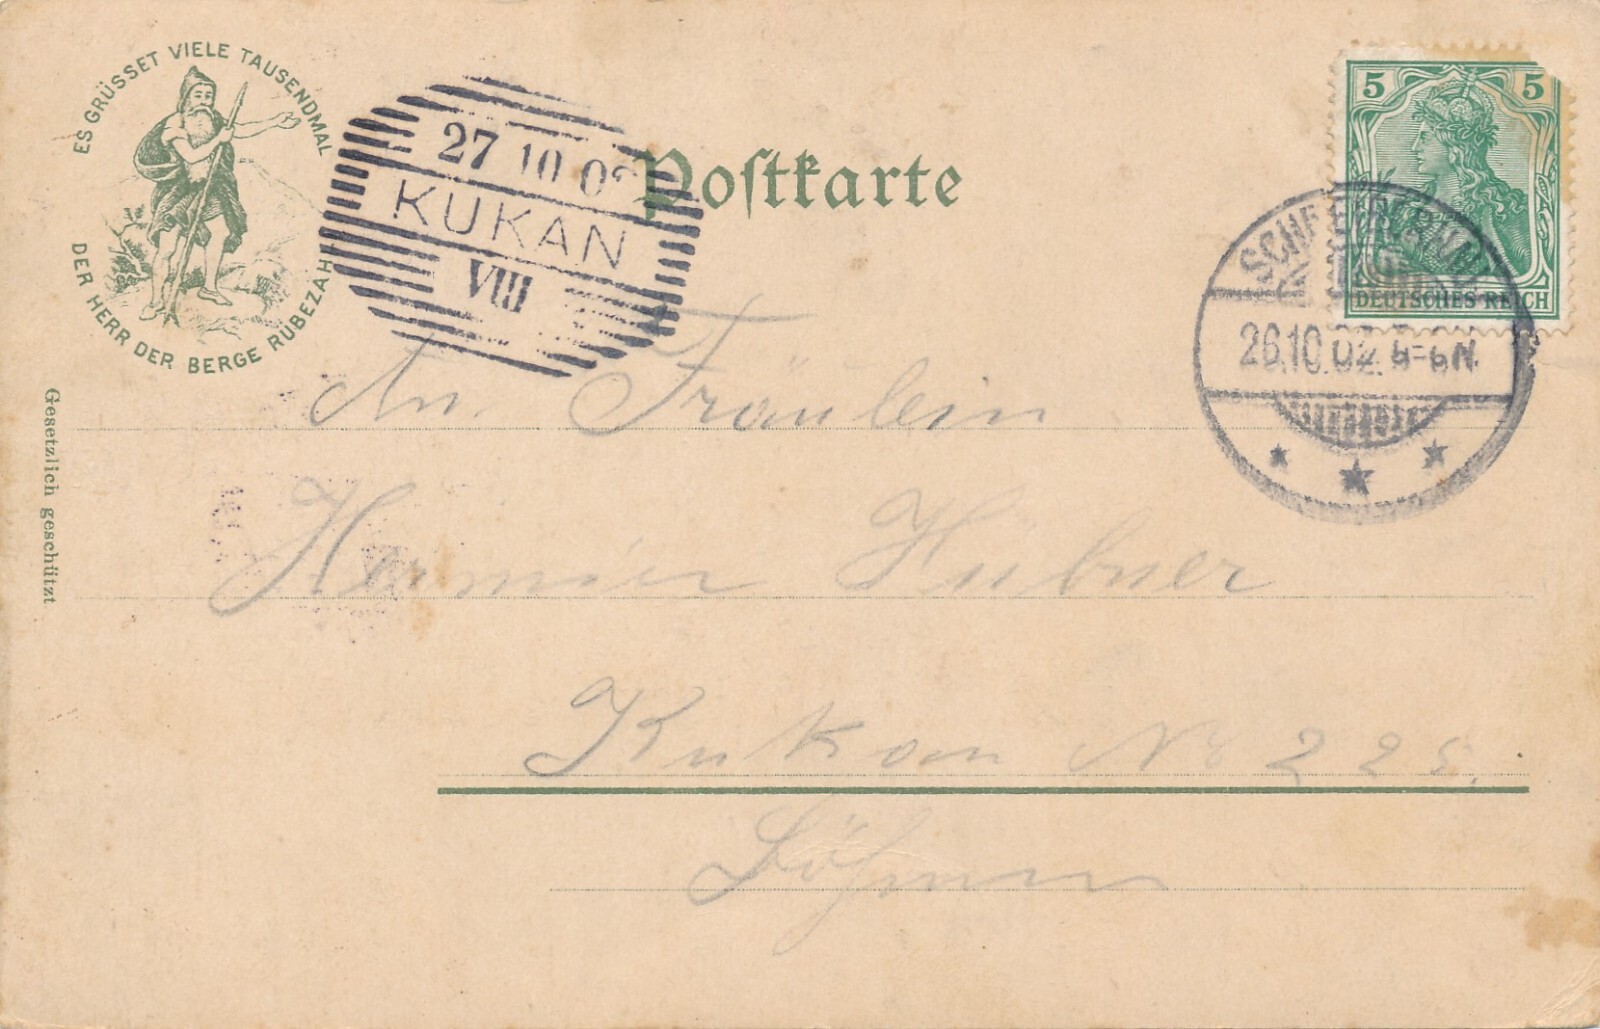 ES GRÜSSET VIELE TAUSENDMAL
DER HERR DER BERGE RÜBEZAHL
Gesetzlich geschützt
27 10 02
KUKAN
VIII
Postkarte
5 5
DEUTSCHES REICH
SCHREIBERHAU
26.10.02. 5-6N.
An Fräulein
Hermine Hübner
Kukan Nr 225.
Böhmen